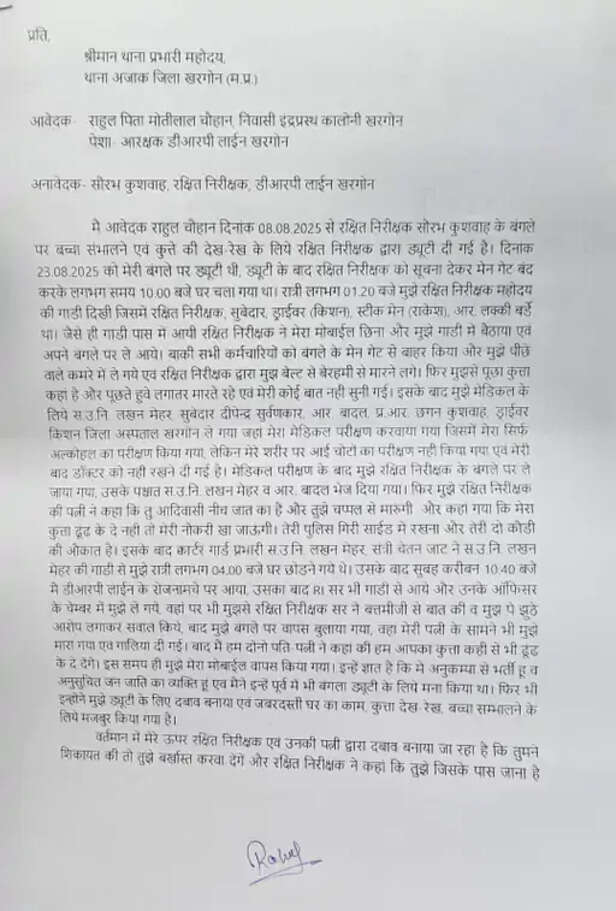 प्रति,
श्रीमान थाना प्रभारी महोदय,
थाना अजाक जिला खरगोन (म.प्र.)
आवेदक- राहुल पिता मोतीलाल चौहान, निवासी इंद्रप्रस्थ कालोनी खरगोन
पेशा- आरक्षक डीआरपी लाईन खरगोन
अनावेदक- सौरभ कुशवाह, रक्षित निरीक्षक, डीआरपी लाईन खरगोन
मै आवेदक राहुल चौहान दिनांक 08.08.2025 से रक्षित निरीक्षक सौरभ कुशवाह के बंगले
पर बच्चा संभालने एवं कुत्ते की देख-रेख के लिये रक्षित निरीक्षक द्वारा ड्यूटी दी गई है। दिनांक
23.08.2025 को मेरी बंगले पर ड्यूटी थी, ड्यूटी के बाद रक्षित निरीक्षक को सूचना देकर मेन गेट बंद
करके लगभग समय 10.00 बजे घर चला गया था। रात्री लगभग 01.20 बजे मुझे रक्षित निरीक्षक महोदय
की गाडी दिखी जिसमें रक्षित निरीक्षक, सुबेदार, ड्राईवर (किशन), स्टीक मेन (राकेश), आर. लक्की बर्डे
था। जैसे ही गाडी पास में आयी रक्षित निरीक्षक ने मेरा मोबाईल छिना और मुझे गाडी मे बैठाया एवं
अपने बंगले पर ले आये। बाकी सभी कर्मचारियों को बंगले के मेन गेट से बाहर किया और मुझे पीछे
वाले कमरे में ले गये एवं रक्षित निरीक्षक द्वारा मुझ बेल्ट से बेरहमी से मारने लगे। फिर मुझसे पूछा कुत्ता
कहा है और पूछते हुवे लगातर मारते रहे एवं मेरी कोई बात नही सुनी गई। इसके बाद मुझे मेडिकल के
लिये स.उ.नि. लखन मेहर, सुबेदार दीपेन्द्र सुर्वणकार, आर. बादल, प्र.आर. छगन कुशवाह, ड्राईवर
किशन जिला अस्पताल खरगोन ले गया जहा मेरा मेडिकल परीक्षण करवाया गया जिसमें मेरा सिर्फ
अल्कोहल का परीक्षण किया गया, लेकिन मेरे शरीर पर आई चोटों का परीक्षण नही किया गया एवं मेरी
बाद डॉक्टर को नही रखने दी गई है। मेडिकल परीक्षण के बाद मुझे रक्षित निरीक्षक के बंगले पर ले
जाया गया, उसके पश्चात स.उ.नि. लखन मेहर व आर. बादल भेज दिया गया। फिर मुझे रक्षित निरीक्षक
की पत्नी ने कहा कि तु आदिवासी नीच जात का है और तुझे चप्पल से मारुगी और कहा गया कि मेरा
कुत्ता ढूंढ के दे नही तो मेरी नोकरी खा जाऊगी। तेरी पुलिस गिरी साईड मे रखना और तेरी दो कोडी
की औकात है। इसके बाद कार्टर गार्ड प्रभारी स.उ.नि. लखन मेहर, संत्री चेतन जाट ने स.उ.नि. लखन
मेहर की गाडी से मुझे रात्री लगभग 04.00 बजे घर छोडने गये थे। उसके बाद सुबह करीबन 10.40 बजे
मे डीआरपी लाईन के रोजनामचे पर आया, उसका बाद RI सर भी गाडी से आये और उनके ऑफिसर
के चेम्बर में मुझे ले गये, वहां पर भी मुझसे रक्षित निरीक्षक सर ने बत्तमीजी से बात की व मुझ पे झुठे
आरोप लगाकर सवाल किये, बाद मुझे बंगले पर वापस बुलाया गया, वहा मेरी पत्नी के सामने भी मुझे
मारा गया एवं गालिया दी गई। बाद मे हम दोनो पति-पत्नी ने कहा की हम आपका कुत्ता कही से भी ढूंढ
के दे देगे। इस समय ही मुझे मेरा मोबाईल वापस किया गया। इन्हें ज्ञात है कि मे अनुकम्पा से भर्ती हू व
अनुसुचित जन जाति का व्यक्ति हूं एव मैने इन्हें पूर्व में भी बंगला ड्यूटी के लिये मना किया था। फिर भी
इन्होने मुझे ड्यूटी के लिए दबाव बनाया एवं जबरदस्ती घर का काम, कुत्ता देख-रेख, बच्चा सम्भालने के
लिये मजबुर किया गया है।
वर्तमान में मेरे ऊपर रक्षित निरीक्षक एवं उनकी पत्नी द्वारा दबाव बनाया जा रहा है कि तुमने
शिकायत की तो तुझे बर्खास्त करवा देगें और रक्षित निरीक्षक ने कहां कि तुझे जिसके पास जाना है
Rahul